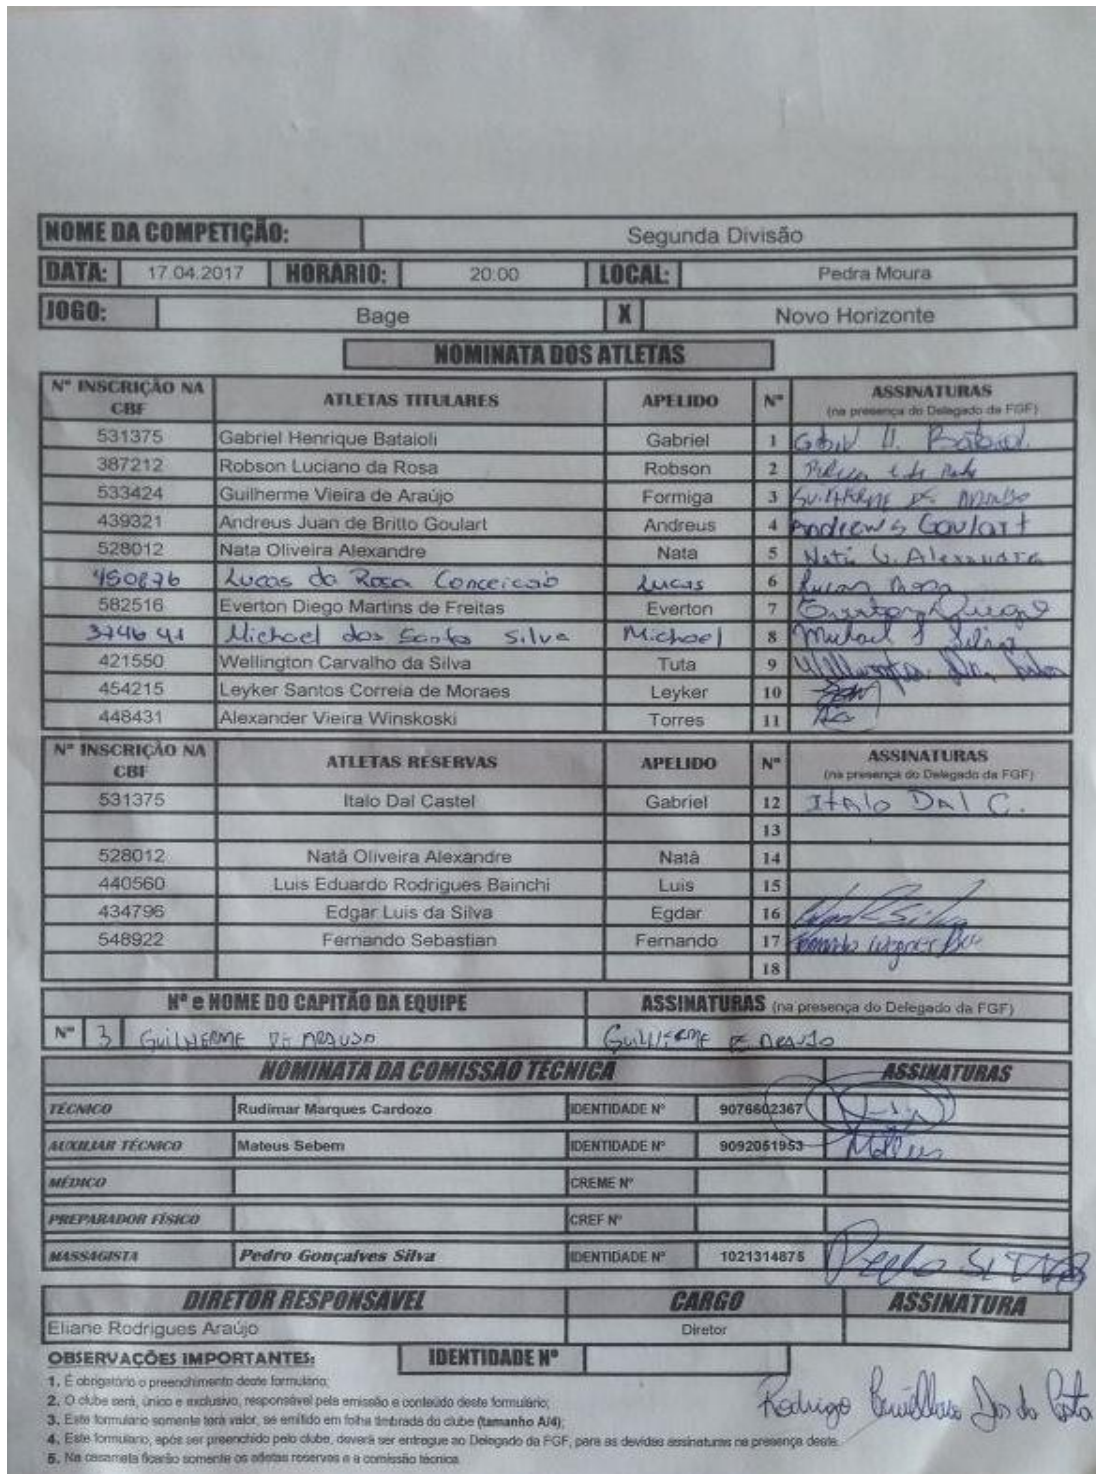 NOME DA COMPETIÇÃO: Segunda Divisão
DATA: 17.04.2017 HORÁRIO: 20:00 LOCAL: Pedra Moura
JOGO: Bage X Novo Horizonte
NOMINATA DOS ATLETAS
Nº INSCRIÇÃO NA CBF ATLETAS TITULARES APELIDO Nº ASSINATURAS (na presença do Delegado da FGF)
531375 Gabriel Henrique Bataioli Gabriel 1 Gabriel H. Bataioli
387212 Robson Luciano da Rosa Robson 2
533424 Guilherme Vieira de Araújo Formiga 3 GUILHERME DE ARAUJO
439321 Andreus Juan de Britto Goulart Andreus 4 Andrews Goulart
528012 Nata Oliveira Alexandre Nata 5 Natã O. Alexandre
450876 Lucas da Rosa Conceicão Lucas 6 Lucas Rosa
582516 Everton Diego Martins de Freitas Everton 7 Everton Diego
374641 Michael dos Santos Silva Michael 8 Michael S Silva
421550 Wellington Carvalho da Silva Tuta 9 Wellington
454215 Leyker Santos Correia de Moraes Leyker 10
448431 Alexander Vieira Winskoski Torres 11
Nº INSCRIÇÃO NA CBF ATLETAS RESERVAS APELIDO Nº ASSINATURAS (na presença do Delegado da FGF)
531375 Italo Dal Castel Gabriel 12 Italo Dal C.
13
528012 Natã Oliveira Alexandre Natã 14
440560 Luis Eduardo Rodrigues Bainchi Luis 15
434796 Edgar Luis da Silva Egdar 16 Silva
548922 Fernando Sebastian Fernando 17 Fernando Wagner
18
Nº e NOME DO CAPITÃO DA EQUIPE ASSINATURAS (na presença do Delegado da FGF)
Nº 3 GUILHERME DE ARAUJO GUILHERME DE ARAUJO
NOMINATA DA COMISSÃO TÉCNICA ASSINATURAS
TÉCNICO Rudimar Marques Cardozo IDENTIDADE Nº 9076602367
AUXILIAR TÉCNICO Mateus Sebem IDENTIDADE Nº 9092051953 Mateus
MÉDICO CREME Nº
PREPARADOR FÍSICO CREF Nº
MASSAGISTA Pedro Gonçalves Silva IDENTIDADE Nº 1021314875 Pedro SILVA
DIRETOR RESPONSÁVEL CARGO ASSINATURA
Eliane Rodrigues Araújo Diretor
OBSERVAÇÕES IMPORTANTES: IDENTIDADE Nº
1. É obrigatório o preenchimento deste formulário;
2. O clube será, único e exclusivo, responsável pela emissão e conteúdo deste formulário;
3. Este formulário somente terá valor, se emitido em folha timbrada do clube (tamanho A/4);
4. Este formulário, após ser preenchido pelo clube, deverá ser entregue ao Delegado da FGF, para as devidas assinaturas na presença deste.
5. Na casamata ficarão somente os atletas reservas e a comissão técnica.
Rodrigo da Costa